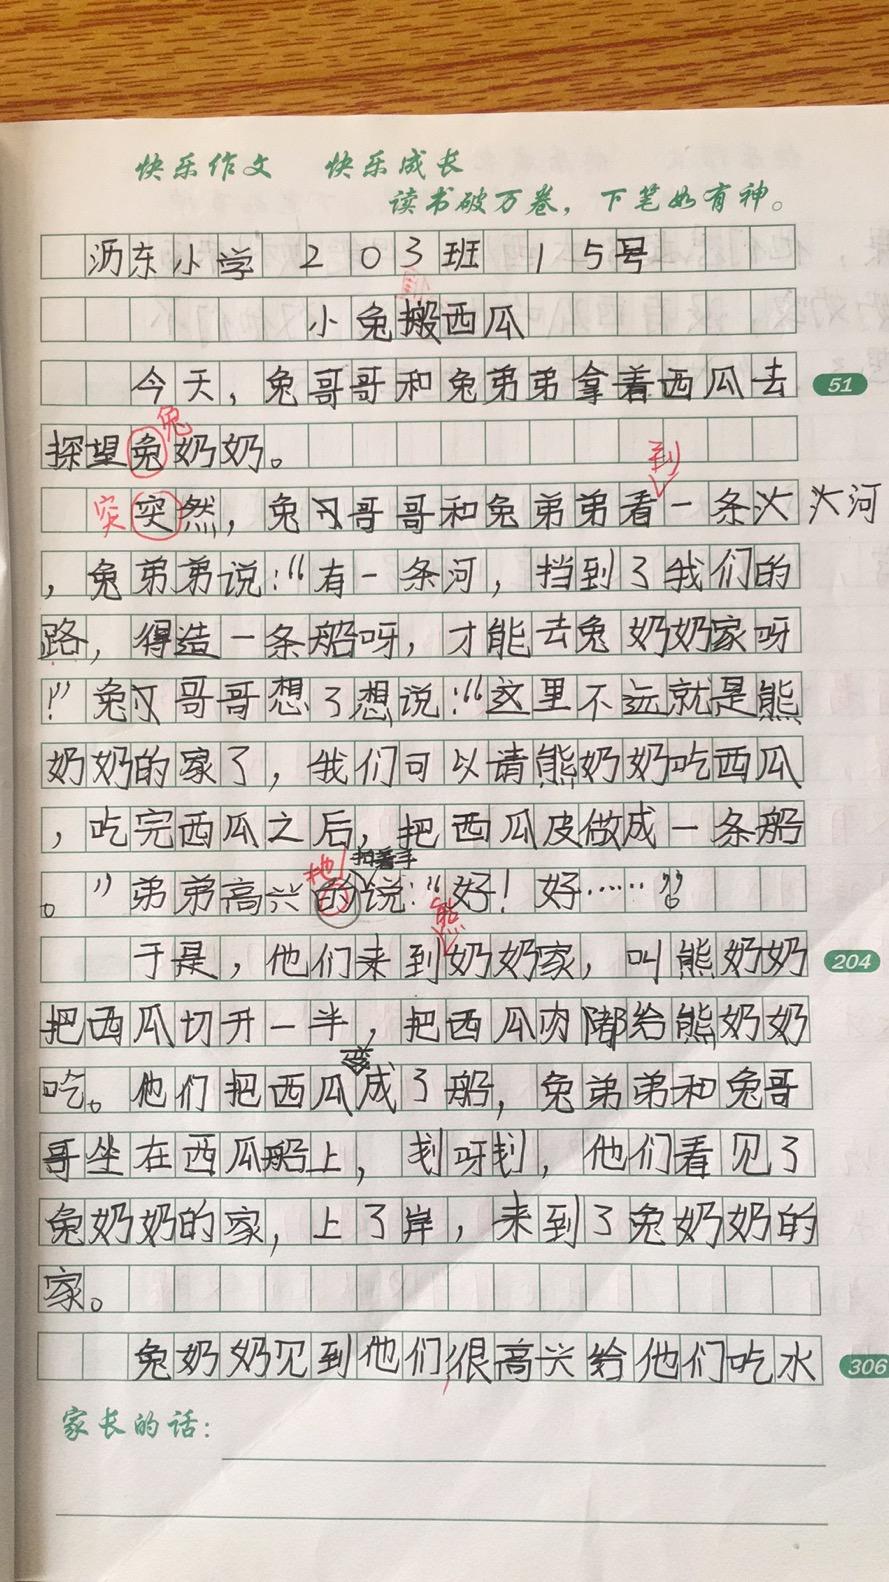 快乐作文 快乐成长
读书破万卷，下笔如有神。
沥东小学 203班 15号
小兔搬西瓜
今天，兔哥哥和兔弟弟拿着西瓜去
51
兔
探望兔奶奶。
到
突 突然，兔哥哥和兔弟弟看一条大河
，兔弟弟说：“有一条河，挡到了我们的
路，得造一条船呀，才能去兔奶奶家呀
！”兔哥哥想了想说：“这里不远就是熊
奶奶的家了，我们可以请熊奶奶吃西瓜
，吃完西瓜之后，把西瓜皮做成一条船
地 拍着手
。”弟弟高兴的说：“好！好……”。
熊
于是，他们来到奶奶家，叫熊奶奶
204
把西瓜切开一半，把西瓜肉都给熊奶奶
变
吃。他们把西瓜成了船，兔弟弟和兔哥
哥坐在西瓜船上，划呀划，他们看见了
兔奶奶的家，上了岸，来到了兔奶奶的
家。
兔奶奶见到他们，很高兴给他们吃水
306
家长的话：